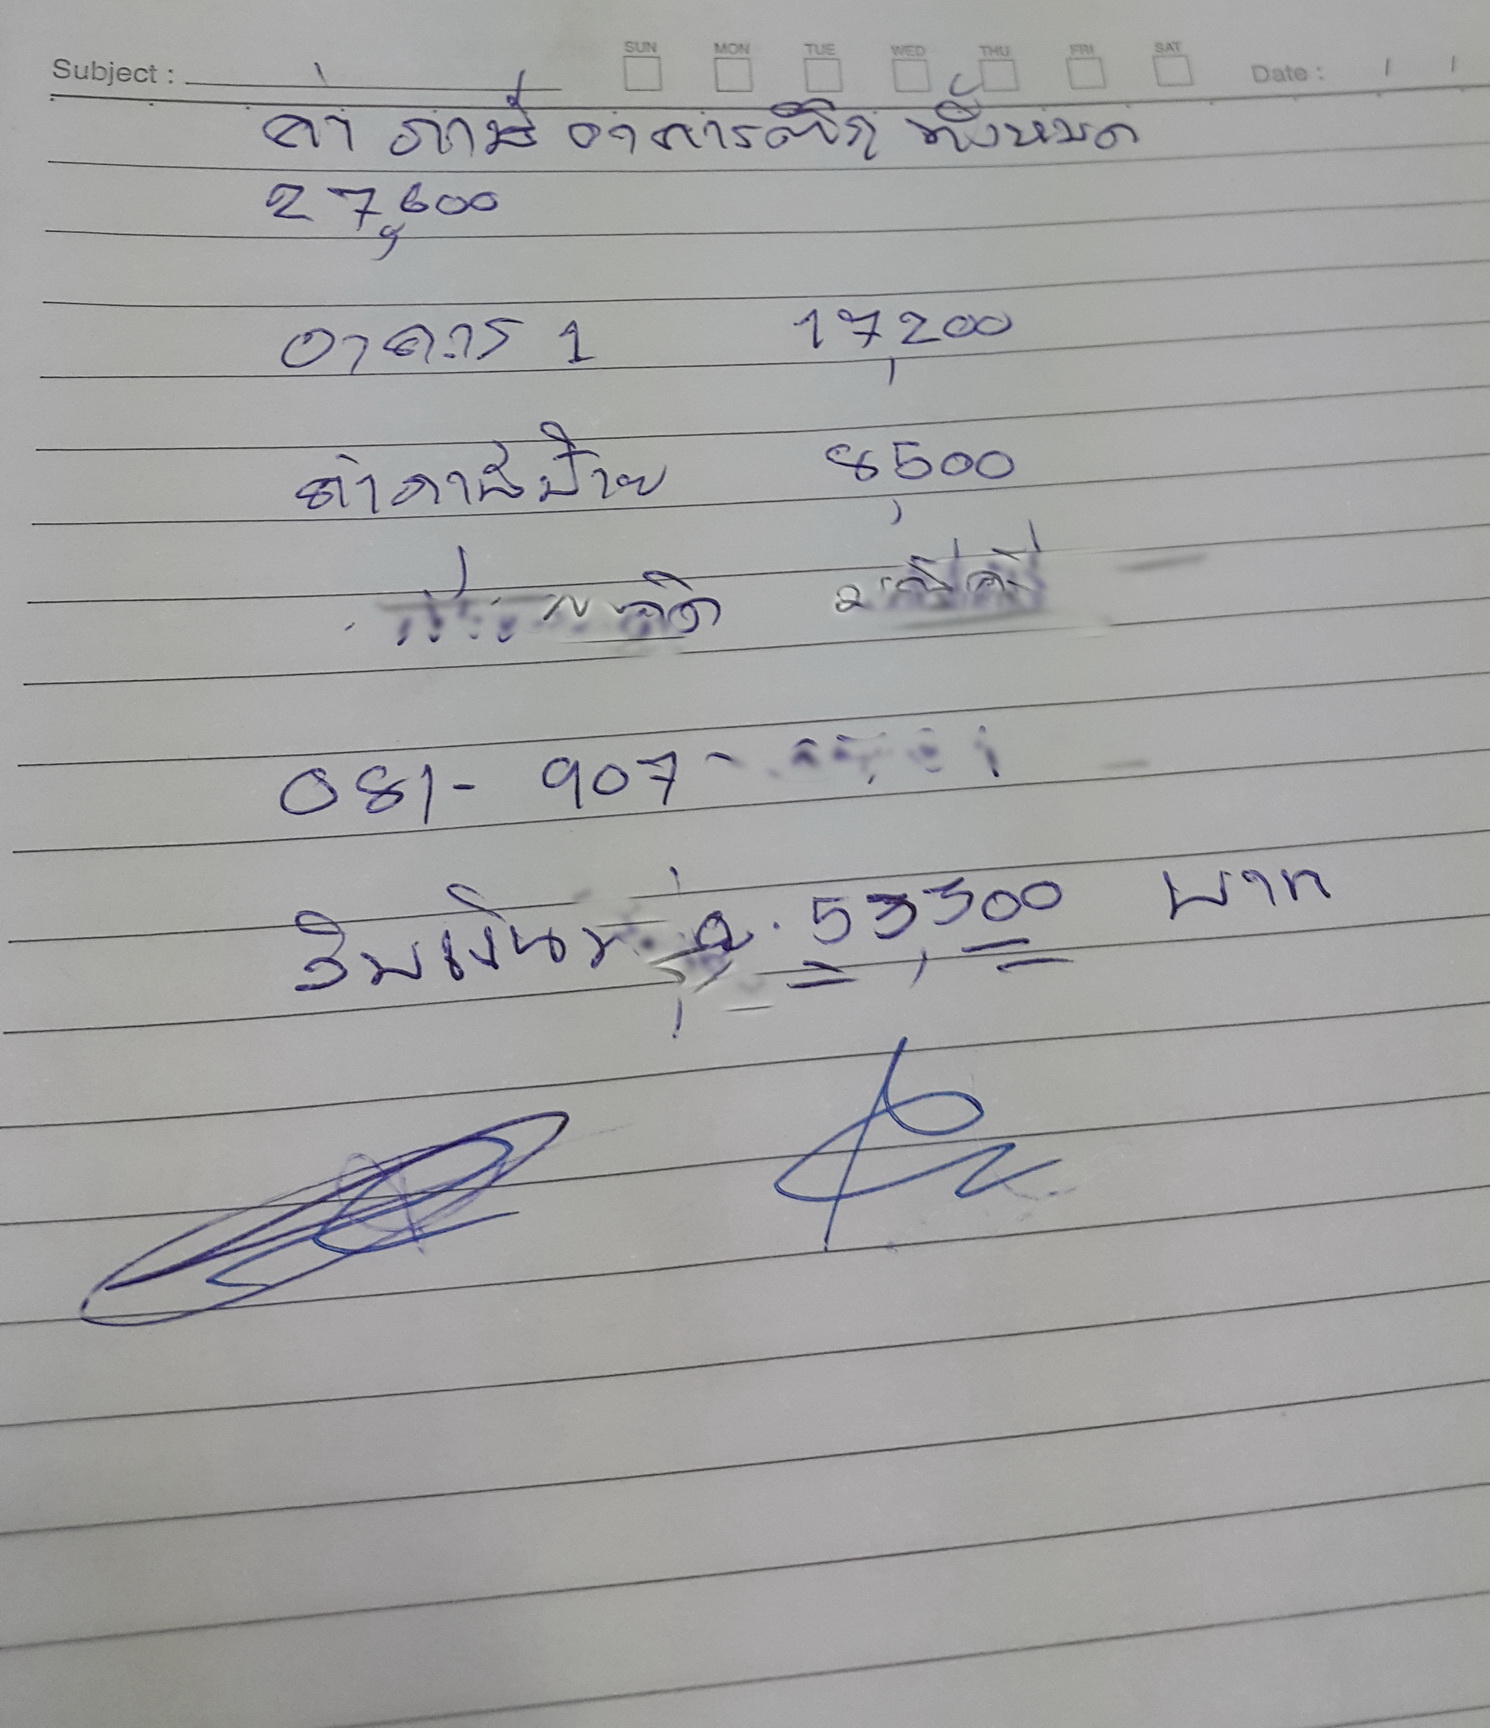 Subject : SUN MON TUE WED THU FRI SAT Date : / /
ค่า ภาษี อาคารตึก ทั้งหมด
27,600
อาคาร 1 17,200
ค่าภาษีป้าย 8,500
081- 907-
รับเงิน 53,300 บาท